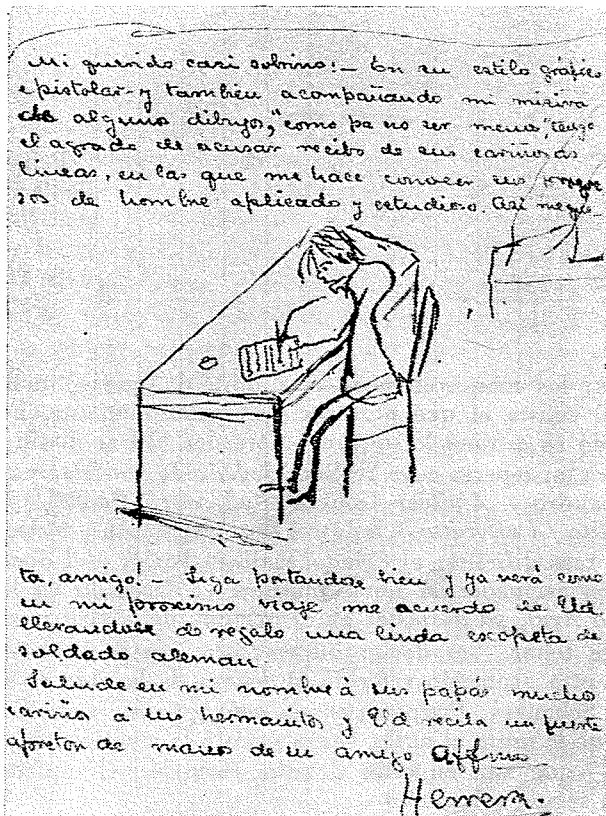 Mi querido casi sobrino:— En su estilo gráfico
epistolar y tambien acompañando mi misiva
de alguno dibujos, "como pa no ser menos," tengo
el agrado de acusar recibo de sus cariñosas
lineas, en las que me hace conocer sus progre
sos de hombre aplicado y estudioso. Asi me gus-
ta, amigo!— Siga portandose bien y ya verá como
en mi proximo viaje me acuerdo de Ud.
llevandole de regalo una linda escopeta de
soldado aleman.
Salude en mi nombre á sus papás mucho
cariño a sus hermanitos y Ud reciba un fuerte
apreton de manos de su amigo Affmo
Herrera.